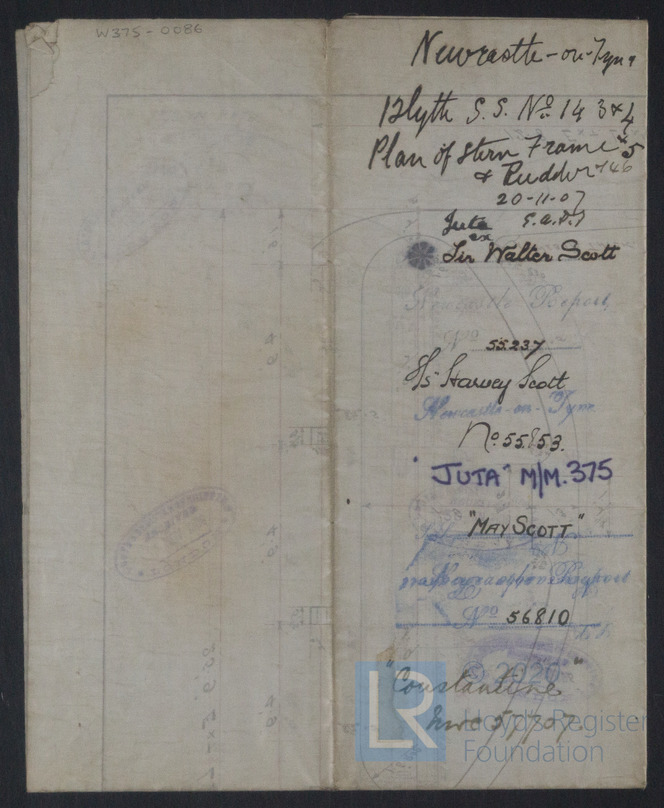 W375-0086
Newcastle-on-Tyne
Blyth S.S. No. 143 & 4
Plan of Stern Frame & 5
& Rudder & 146
20-11-07
Juta
ex
Sir Walter Scott
Newcastle Report
No 55237
S/s "Harvey Scott
Newcastle-on-Tyne
No. 55853.
"JUTA" M/M. 375
"MAY SCOTT"
Report
No 56810
"Constantine"
Nwc 57707.
© 2020
LR
Lloyd's Register
Foundation